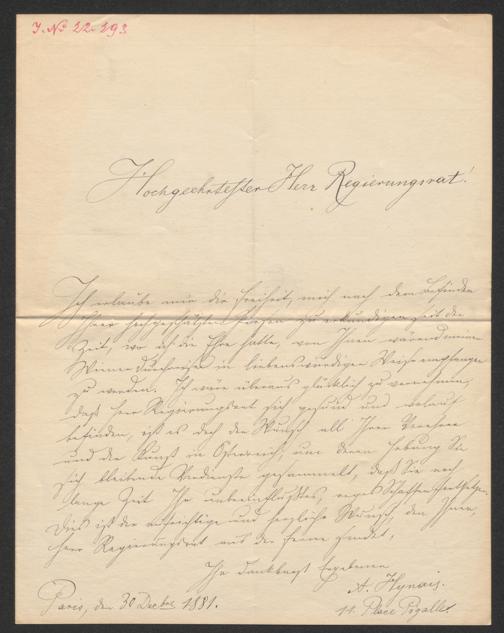 J. No 22.293
Hochgeehrtester Herr Regierungsrat!
Ich erlaube mir die Freiheit, mich nach dem Befinden
Ihrer hochgeschätzten Person zu erkundigen seit der
Zeit, wo ich die Ehre hatte, von Ihnen während meiner
Wiener Durchreise in liebenswürdiger Weise empfangen
zu werden. Ich wäre überaus glücklich zu vernehmen,
daß Herr Regierungsrat sich gesund und
befinden, ist es doch der Wunsch all Ihrer Verehrer
und der Kunst in Österreich, um deren Hebung Sie
sich bleibende Verdienste gesammelt, daß Sie noch
lange Zeit Ihr reges Schaffen fortsetzen.
Dieß ist der aufrichtige und herzliche Wunsch, den Ihnen,
Herr Regierungsrat aus der Ferne sendet,
Ihr dankbarst Ergebener
A. Hynais.
Paris, den 30 Decbre 1881.
11. Place Pigalle.